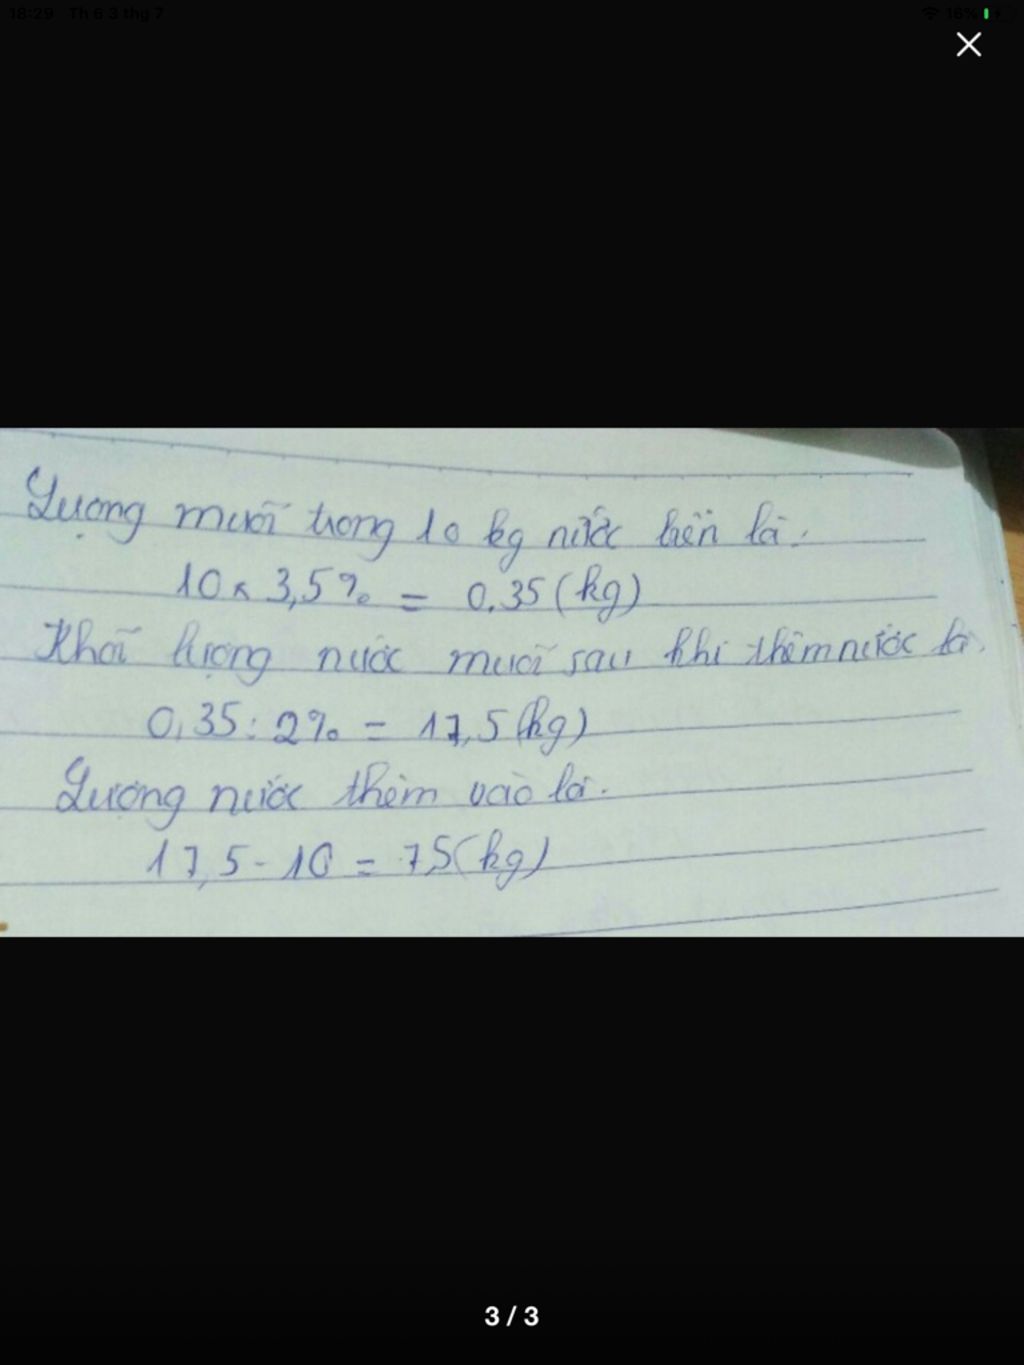 18:29 Th 6 3 thg 7
16%
Lượng muối trong 10 kg nước biển là:
10 x 3,5% = 0.35 (kg)
Khối lượng nước muối sau khi thêm nước là.
0,35 : 2% = 17,5 (kg)
Lượng nước thêm vào là.
17,5 - 10 = 7,5 (kg)
3 / 3